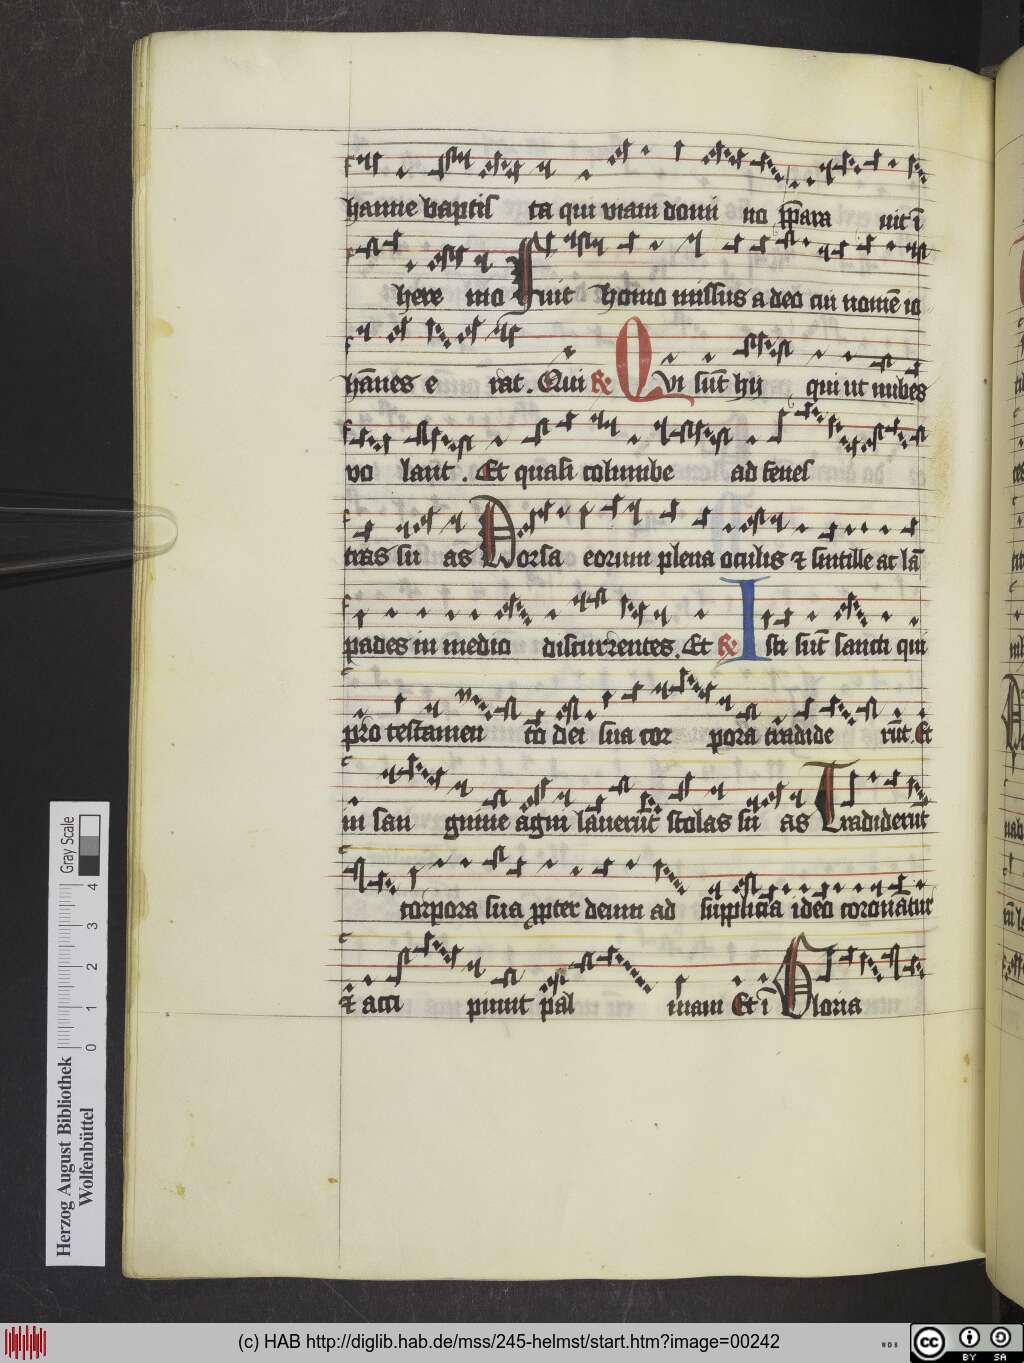 hanne baptis ta qui viam domi no ꝑpara uit ī
here mo Fuit homo missus a deo cui nomē io
hānes e rat. Qui ℟ Qvi sūt hii qui ut nubes
vo lant. Et quasi columbe ad fenes
tras su as Dorsa eorum plena oculis ⁊ sintille ac lā
pades in medio discurrentes. Et ℟ Isti sūt sancti qui
pro testamen to dei sua cor pora tradide rūt. Et
in san guine agni lauerūt stolas su as Tradiderūt
corpora sua ꝓpter deum ad supplicia ideo coronātur
⁊ acci piunt pal mam Et ī Gloria
Herzog August Bibliothek
Wolfenbüttel
Gray Scale
0 1 2 3 4
(c) HAB http://diglib.hab.de/mss/245-helmst/start.htm?image=00242
WDB
cc BY SA